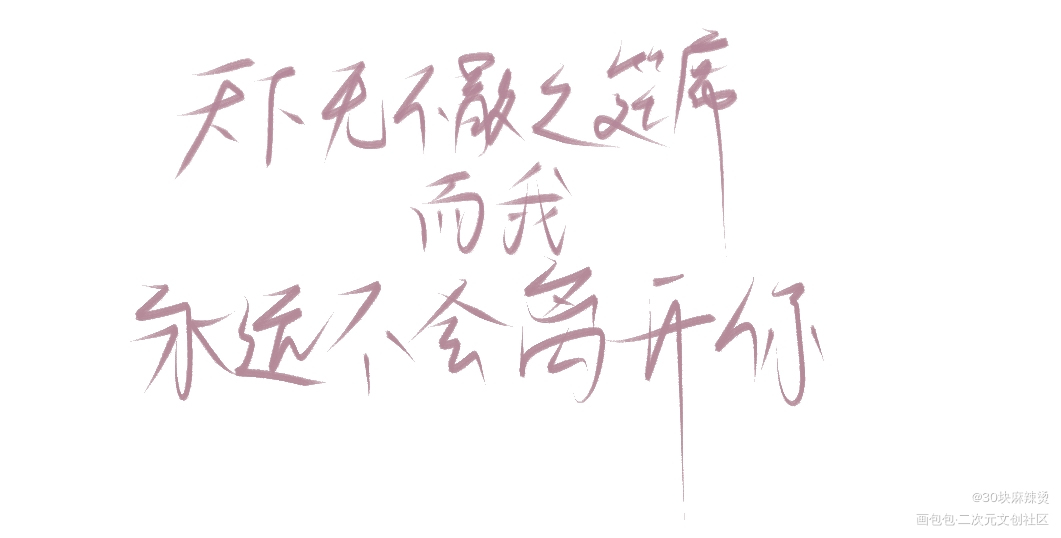 天下无不散之筵席
而我
永远不会离开你
@30块麻辣烫
画包包·二次元文创社区